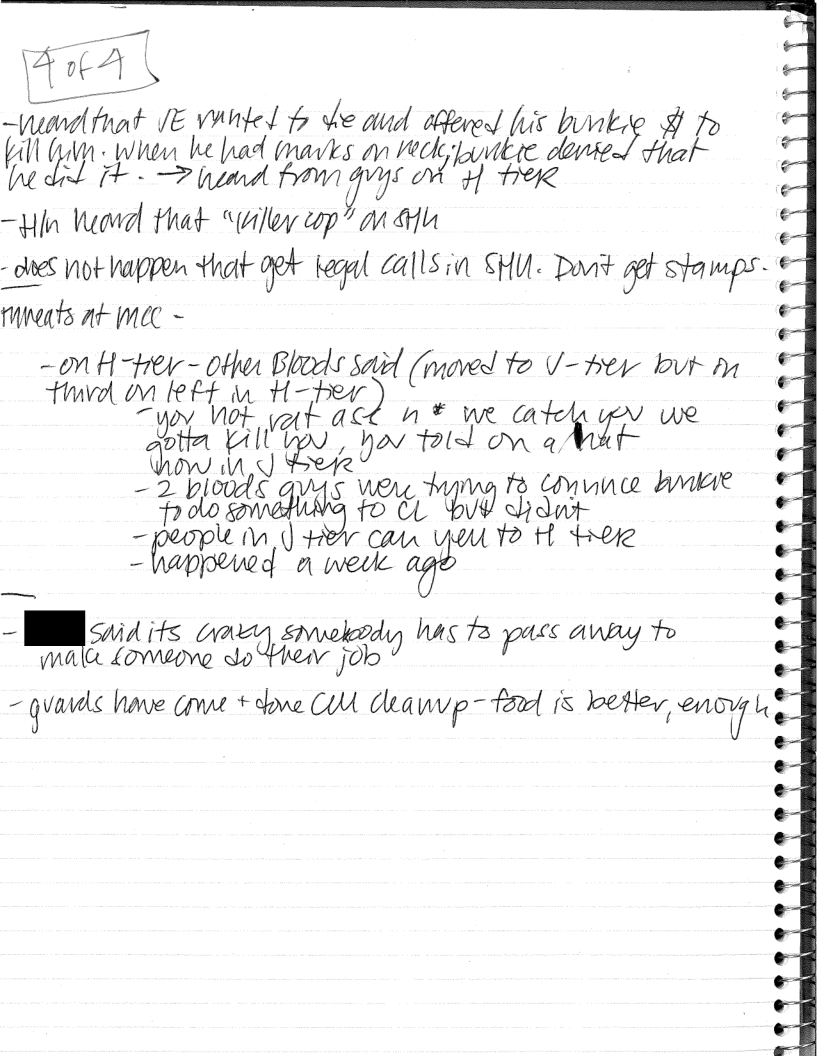 4 of 4
-heard that JE wanted to die and offered his bunkie $ to
kill him. when he had marks on neck, bunkie denied that
he did it. → heard from guys on H tier
- H/n heard that "killer cop" on SHU
- does not happen that get legal calls in SHU. Don't get stamps.
threats at MCC -
- on H-tier - other Bloods said (moved to J-tier but in
third on left in H-tier)
- you hot rat ass n* we catch you we
gotta kill you, you told on a hat
now in J tier
- 2 bloods guys were trying to convince bunkie
to do something to CL but didn't
- people in J tier can yell to H tier
- happened a week ago
- said its crazy somebody has to pass away to
make someone do their job
- guards have come + done cell cleanup - food is better, enough